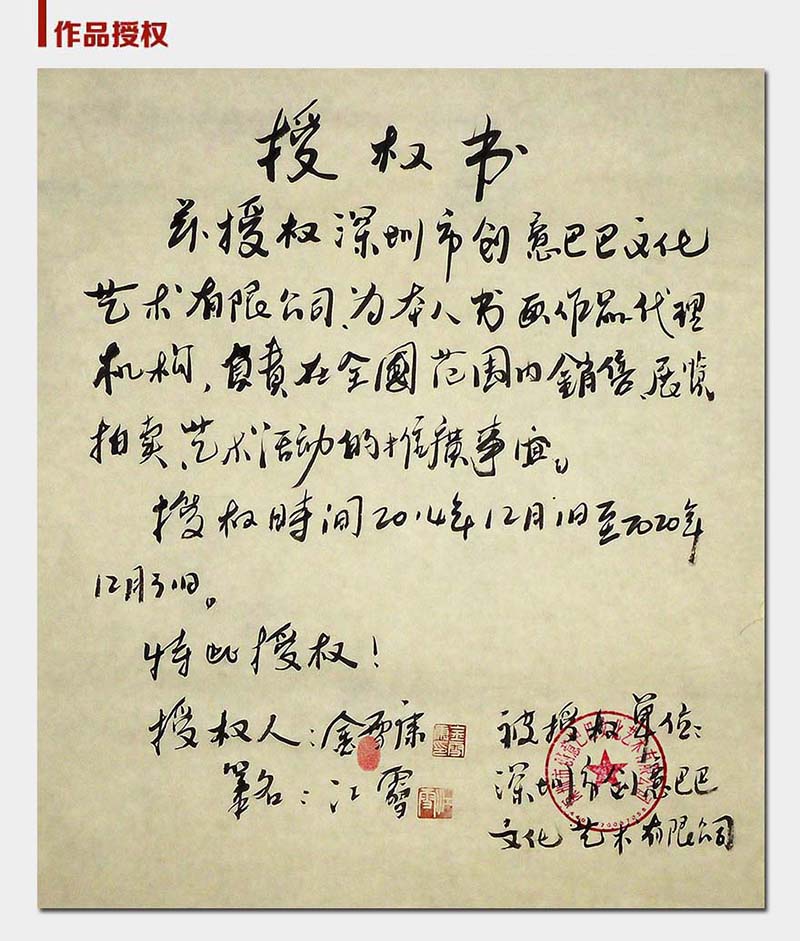 作品授权
授权书
兹授权深圳市创意巴巴文化
艺术有限公司、为本人书画作品代理
机构，負責在全國范围内銷售、展览、
拍卖、艺术活动的推廣事宜。
授权時间2014年12月1日至2020年
12月31日。
特此授权！
授权人：金雪康
笔名：江雪
被授权单位：
深圳市创意巴巴
文化艺术有限公司